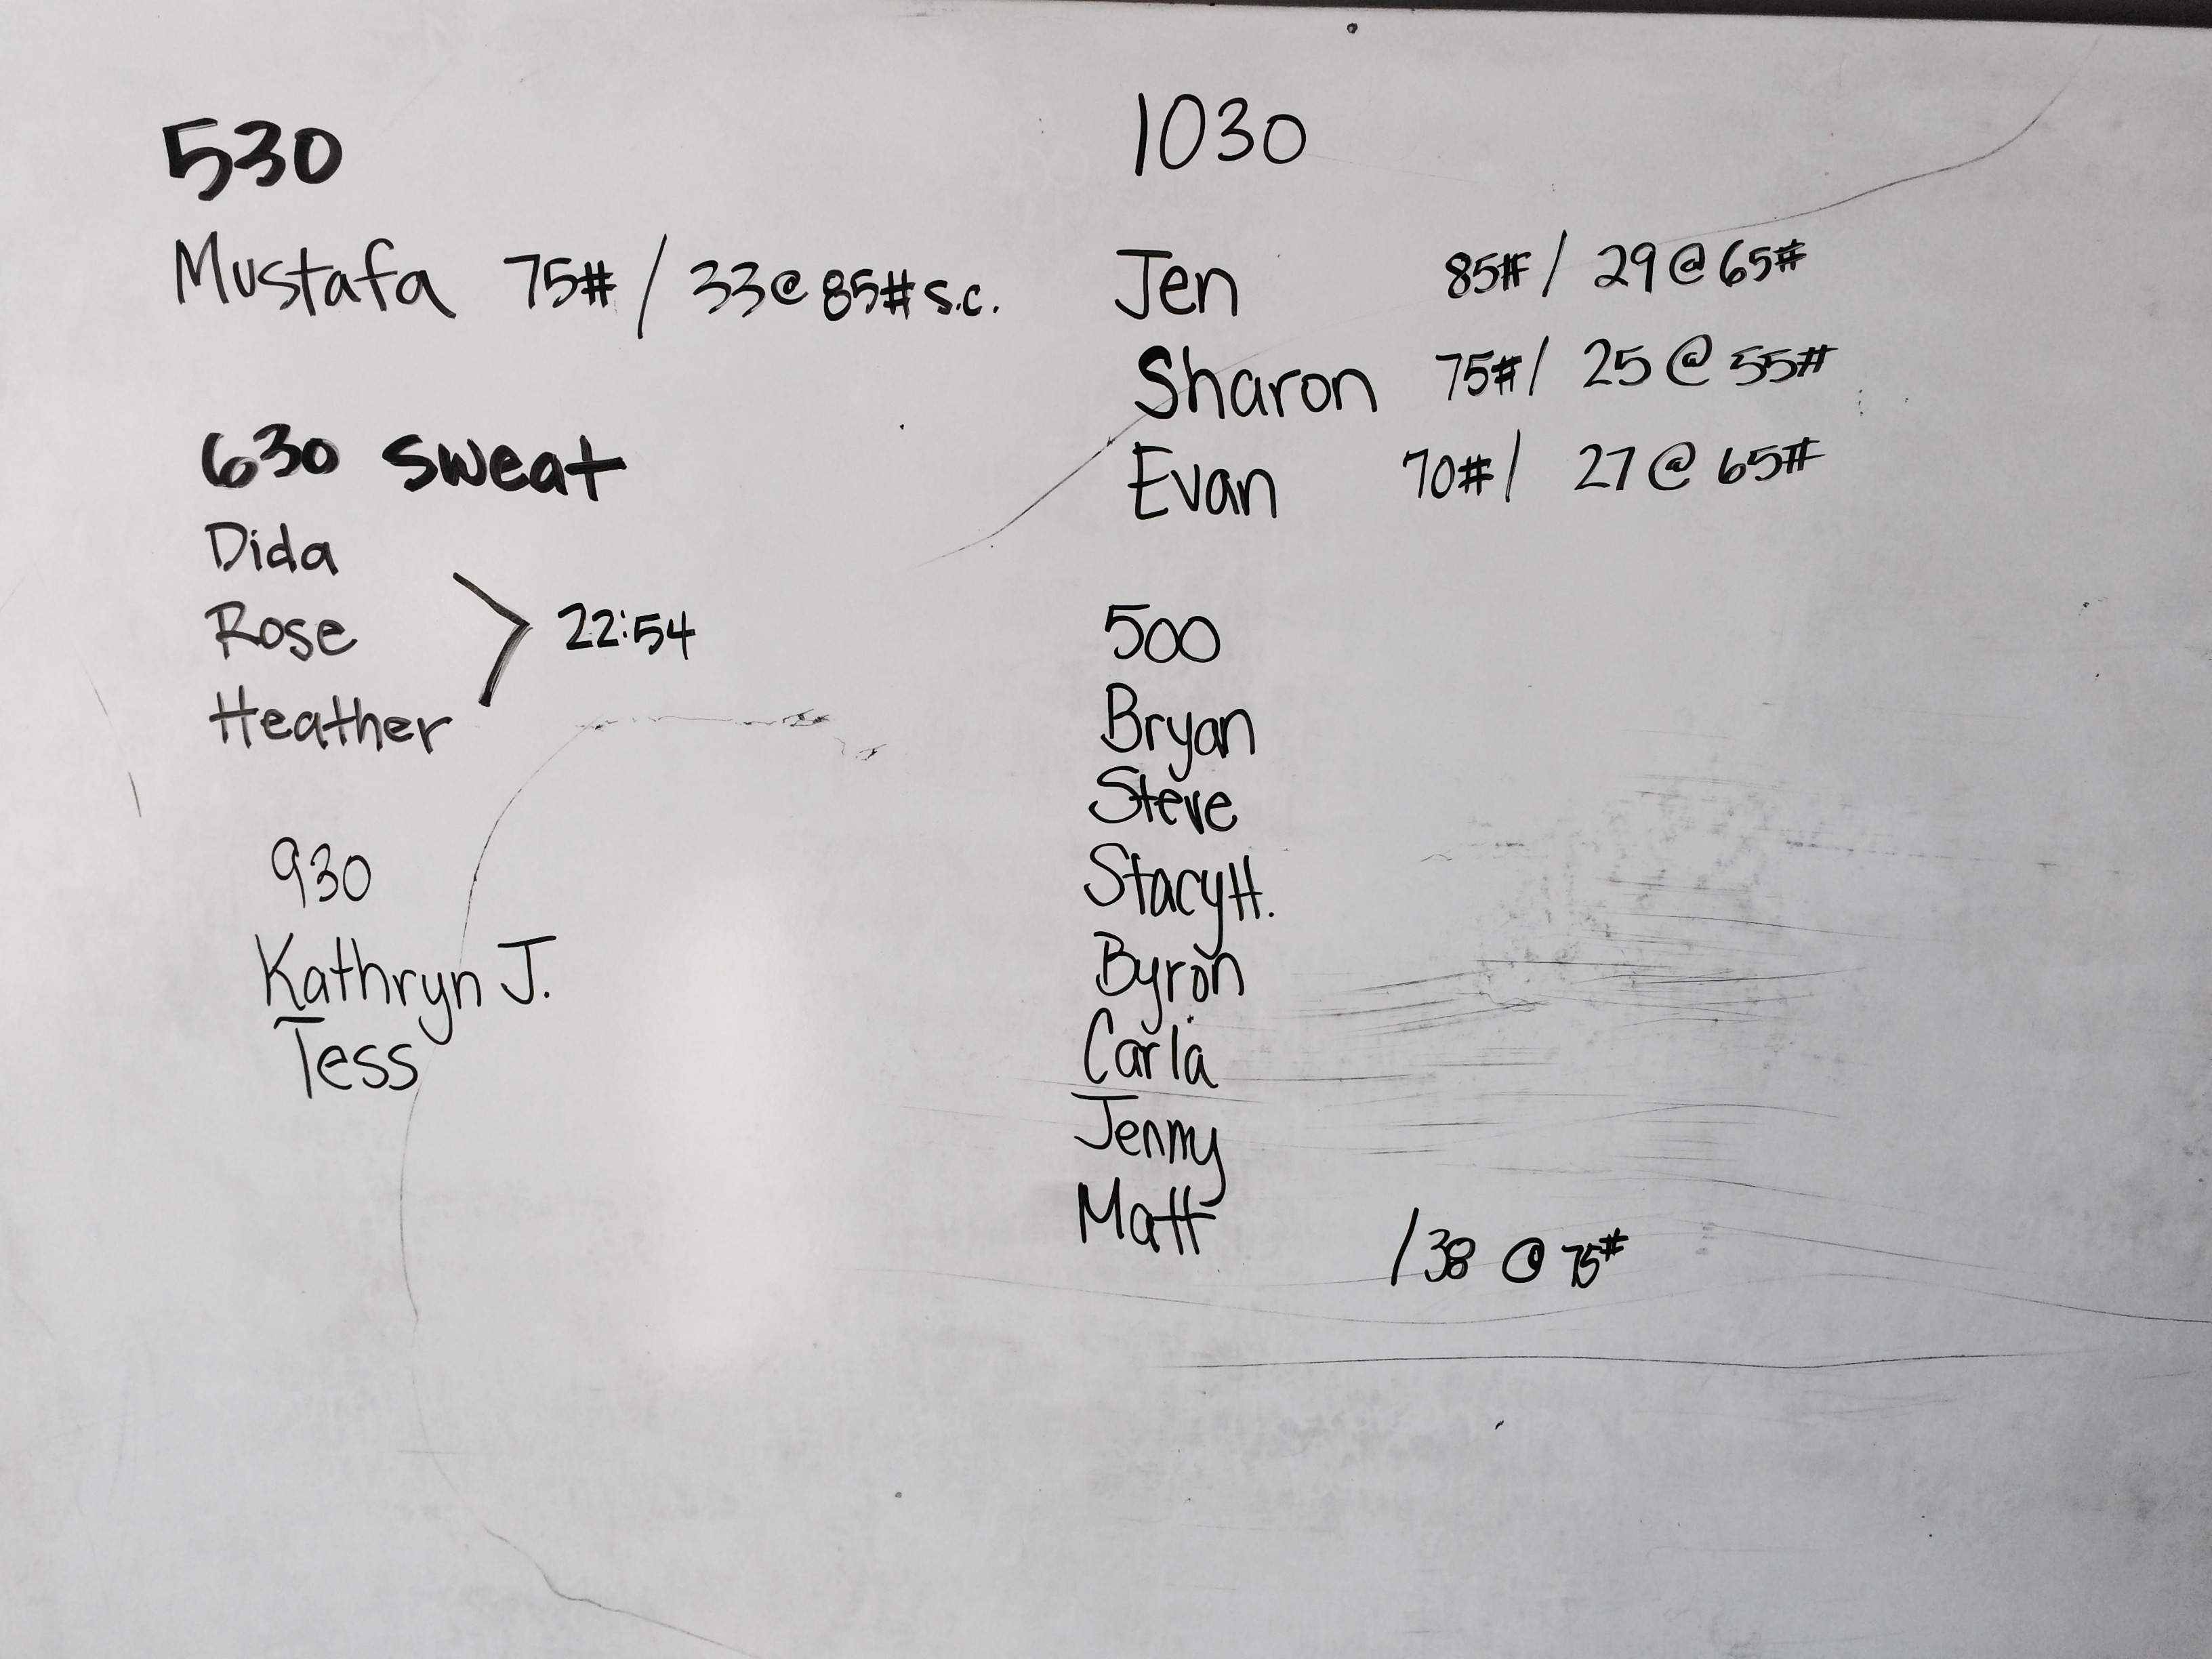 530
Mustafa 75# / 33@85# s.c.
630 Sweat
Dida
Rose
Heather
> 22:54
930
Kathryn J.
Tess
1030
Jen 85# / 29@65#
Sharon 75# / 25@55#
Evan 70# / 27@65#
500
Bryan
Steve
Stacy H.
Byron
Carla
Jenny
Matt / 38 @ 75#